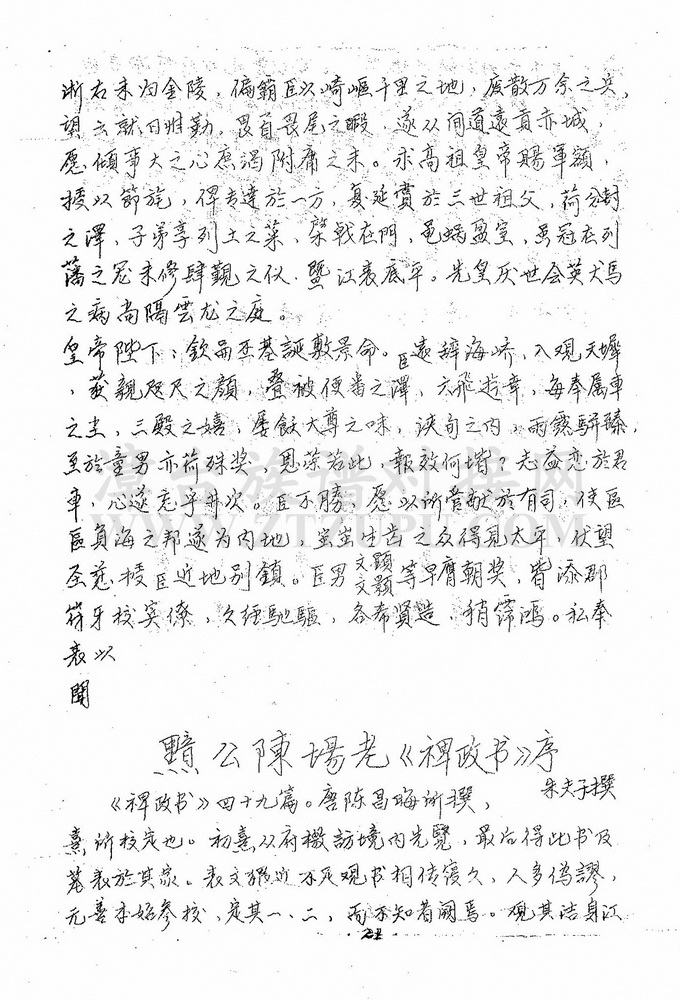 浙右未归金陵，偏霸臣以崎岖千里之地，废散万余之兵，
望云就日雖勤，畏首畏尾之暇，遂从间道遠貢赤城，
愿傾事大之心庶渴附庸之末。求高祖皇帝賜軍額，
授以節旄，俾专達於一方，复延賞於三世祖父，荷分封
之澤，子弟享列土之荣、棨戟在門，龟蝸盈室，虽冠在列
藩之冠未修肆覲之仪，暨江表底平。先皇厌世会英犬馬
之病尚隔雲龙之庭。
皇帝陛下：欽嵒丕基誕敷景命。臣遠辞海峤，入观天墀
，获親咫尺之顔，叠被便番之澤，六飛遊幸，每奉属車
之尘，三殿之嬉，屡飲大尊之味，浹旬之内，雨露駢臻，
至於童男亦荷殊奖，恩荣若此，報效何堦？志益恋於君
車，心遂充乎井次。臣不勝，愿以所管献於有司，使區
區負海之邦遂为内地，蚩蚩生齿之众得見太平，伏望
圣慈授臣近地别鎮。臣男文顕文顥等早膺朝奖，皆添郡
符牙校賓僚，久經馳驅，各希賢造，稍霈鴻。私奉
表以
聞
黯公陳場老《裨政书》序
朱夫子撰
《裨政书》四十九篇。唐陈昌晦所撰，
熹所校定也。初熹从府檄訪境内先覽，最后得此书及
墓表於其家。表文猥近不足观书相传寝久，人多偽謬，
元善本始参校，定其一、二，而不知者阙焉。观其洁身江
22
漳台族谱对接网
WWW.ZTZUPU.COM